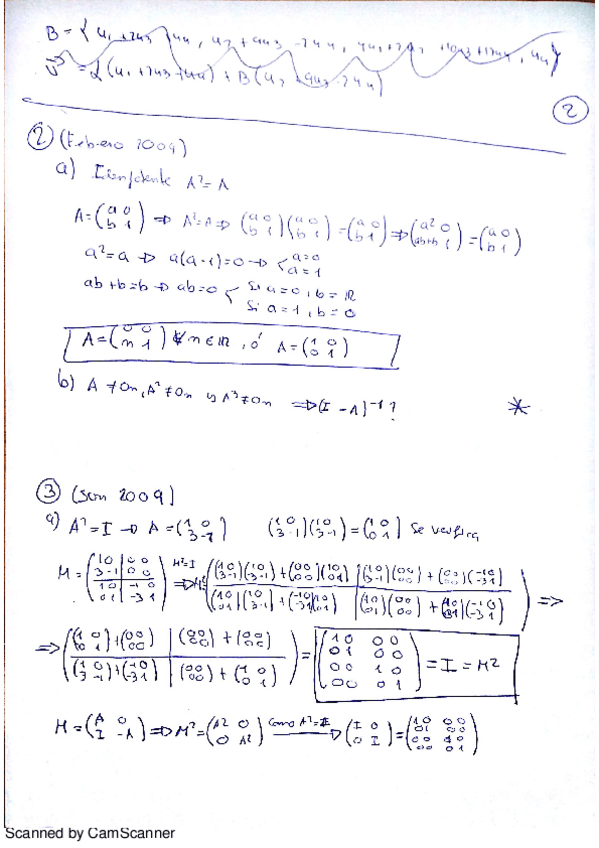 B = { u1 + 2u3 + 4u4, u2 + 9u3 - 24u4, , u4 }
V = α(u1 + 2u3 + 4u4) + B(u2 9u3 - 24u4)
②
② (Febrero 2009)
a) Idempotente A² = A
A = (a 0 / b 1) ⇒ A² = A ⇒ (a 0 / b 1)(a 0 / b 1) = (a 0 / b 1) ⇒ (a² 0 / ab+b 1) = (a 0 / b 1)
a² = a → a(a-1) = 0 → < a = 0 / a = 1
ab + b = b → ab = 0 < Si a = 0, b = ℝ / Si a = 1, b = 0
A = (0 0 / n 1) ∀ n ∈ ℝ, ó A = (1 0 / 0 1)
b) A ≠ 0n, A² ≠ 0n y A³ ≠ 0n ⇒ (I - A)⁻¹ ? *
③ (Jun 2009)
a) A² = I → A = (1 0 / 3 -1) (1 0 / 3 -1)(1 0 / 3 -1) = (1 0 / 0 1) Se verifica
M = (1 0 | 0 0 / 3 -1 | 0 0 / 1 0 | -1 0 / 0 1 | -3 1) M²=I ⇒ ((1 0 / 3 -1)(1 0 / 3 -1) + (0 0 / 0 0)(1 0 / 0 1) | (1 0 / 3 -1)(0 0 / 0 0) + (0 0 / 0 0)(-1 0 / -3 1) / (1 0 / 0 1)(1 0 / 3 -1) + (-1 0 / -3 1)(1 0 / 0 1) | (1 0 / 0 1)(0 0 / 0 0) + (-1 0 / -3 1)) ⇒
⇒ ((1 0 / 0 1) + (0 0 / 0 0) | (0 0 / 0 0) + (0 0 / 0 0) / (1 0 / 3 -1) + (-1 0 / -3 1) | (0 0 / 0 0) + (1 0 / 0 1)) = (1 0 0 0 / 0 1 0 0 / 0 0 1 0 / 0 0 0 1) = I = M²
M = (A 0 / I -A) ⇒ M² = (A² 0 / 0 A²) como A²=I → (I 0 / 0 I) = (1 0 0 0 / 0 1 0 0 / 0 0 1 0 / 0 0 0 1)
Scanned by CamScanner